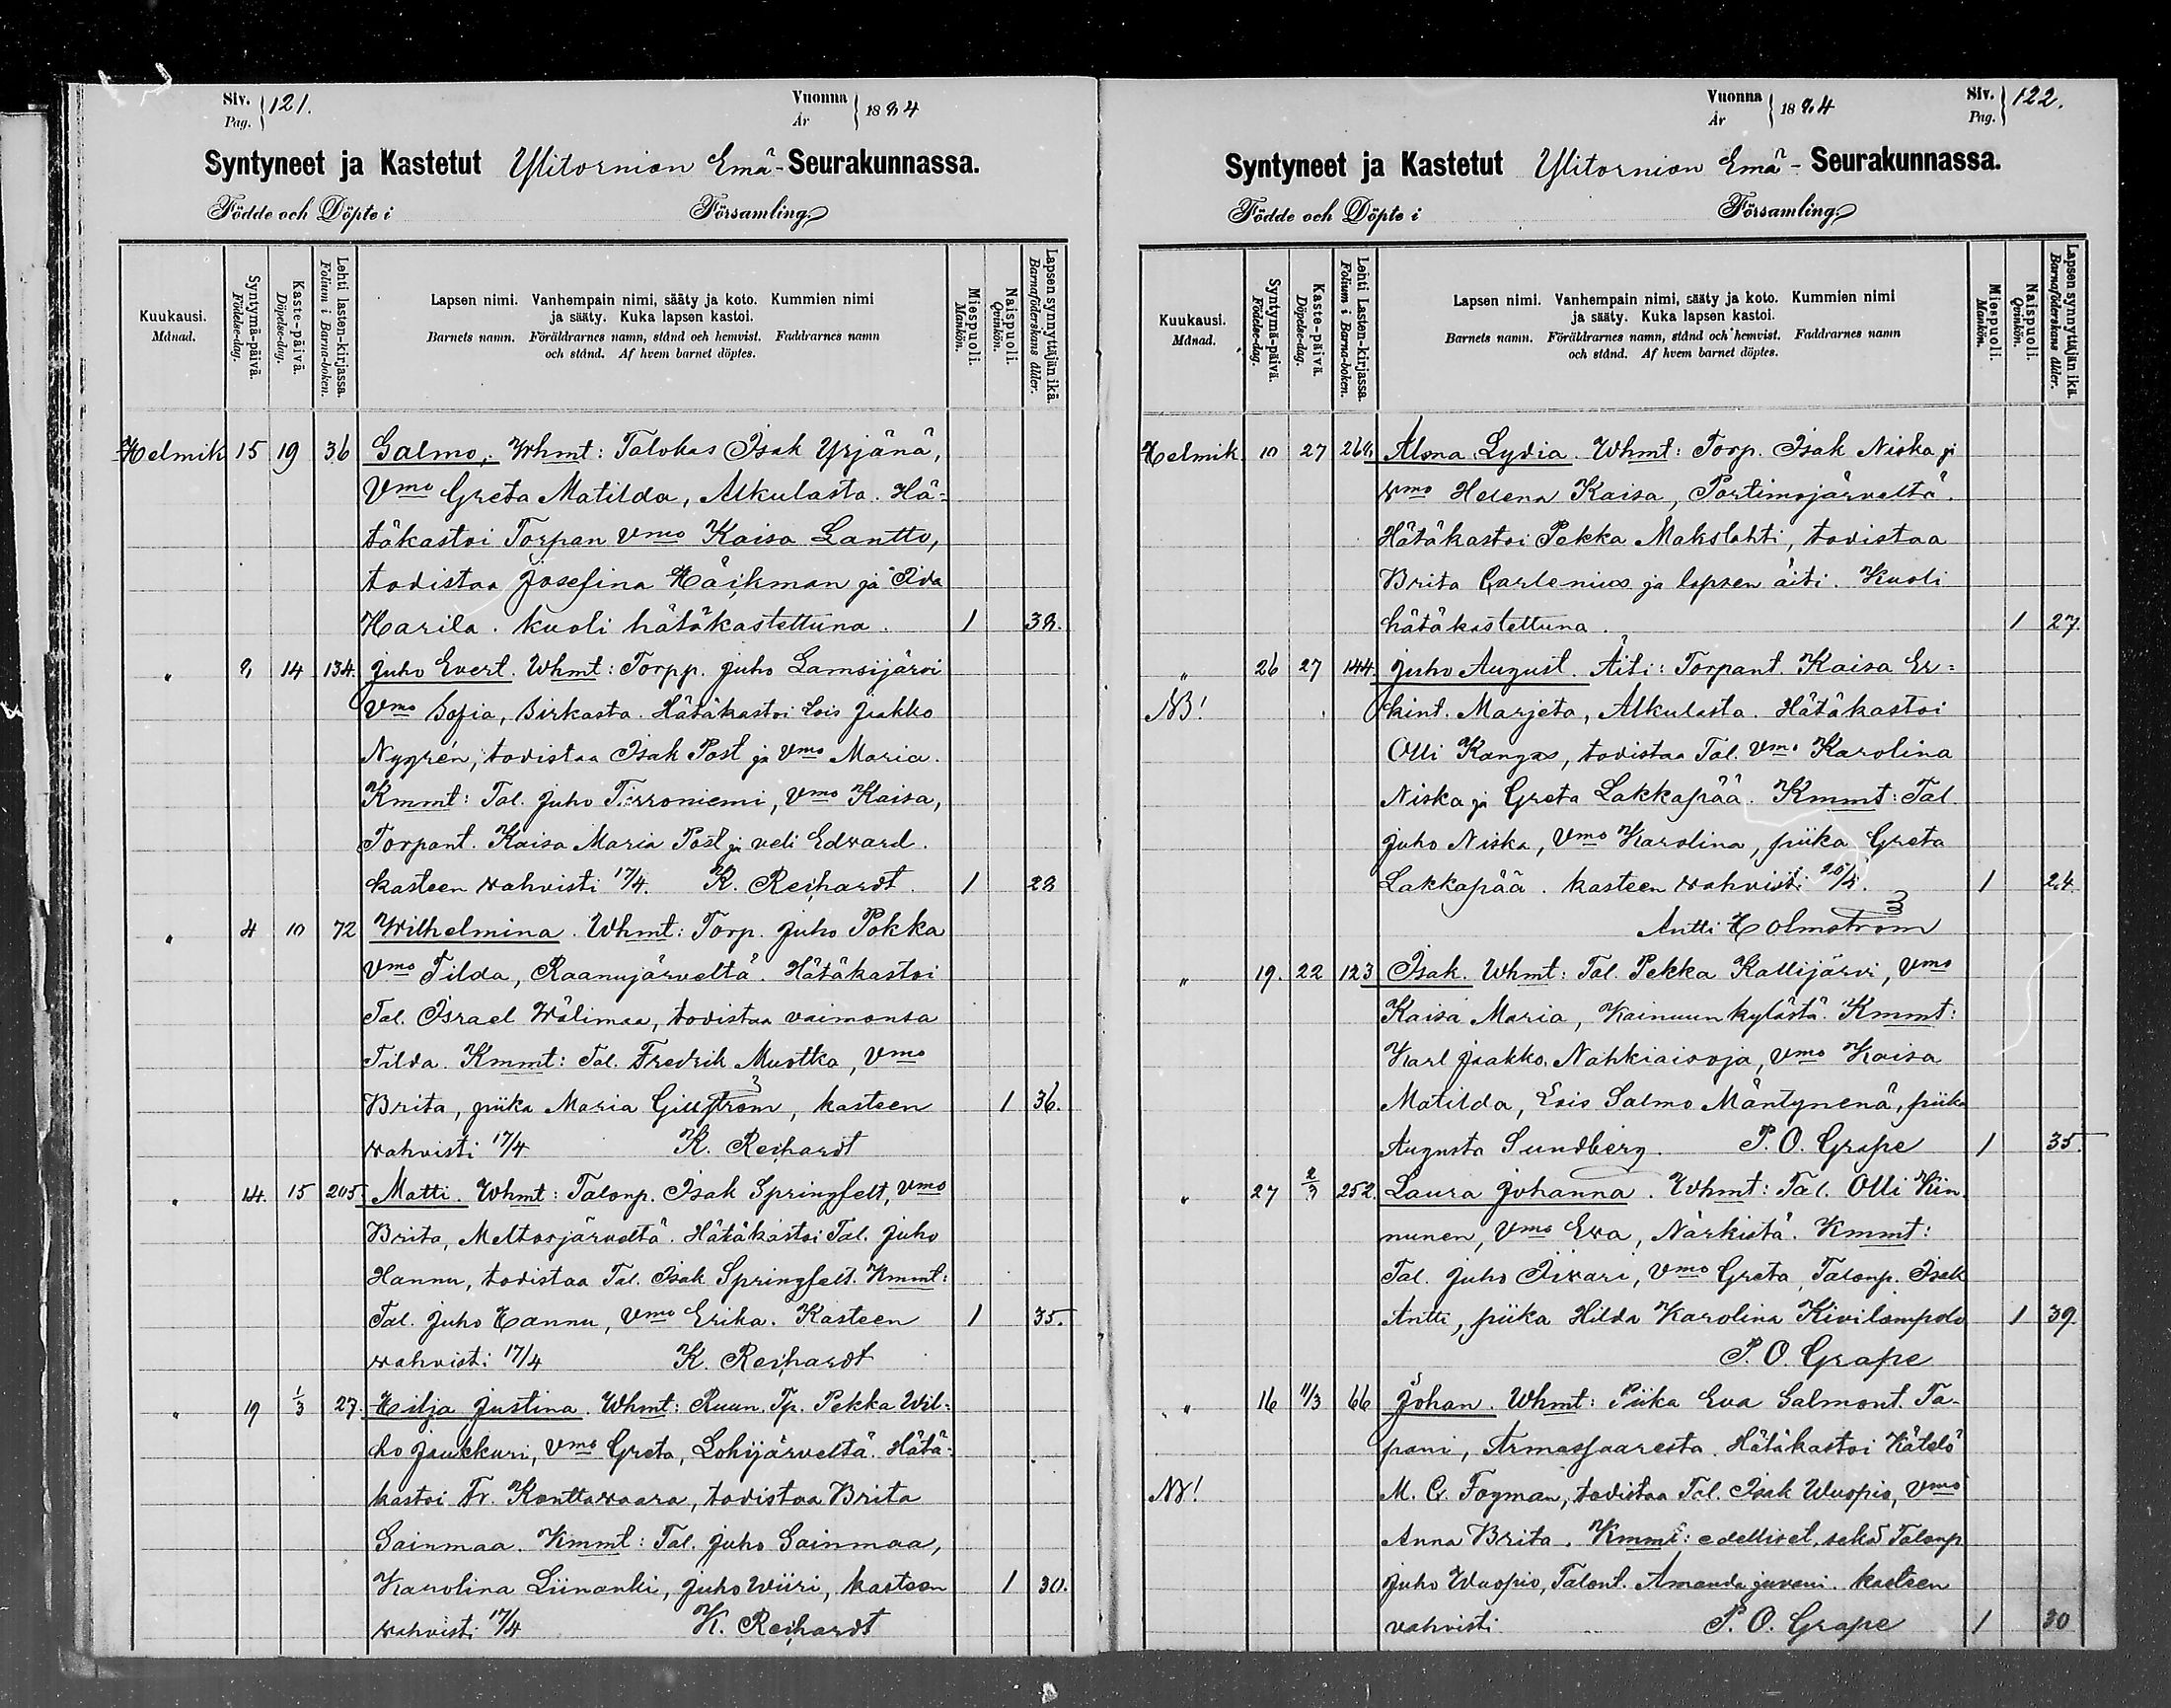 Siv. Pag. 121.
Vuonna År 1884
Syntyneet ja Kastetut Ylitornion Emä-Seurakunnassa.
Födde och Döpte i Församling
Kuukausi. Månad.
Syntymä-päivä. Födelse-dag.
Kaste-päivä. Döpelse-dag.
Lehti lasten-kirjassa. Folium i Barna-boken.
Lapsen nimi. Vanhempain nimi, sääty ja koto. Kummien nimi
ja sääty. Kuka lapsen kastoi.
Barnets namn. Föräldrarnes namn, stånd och hemvist. Faddrarnes namn
och stånd. Af hvem barnet döptes.
Miespuoli. Mankön.
Naispuoli. Qvinkön.
Lapsen synnyttäjän ikä. Barnaföderskans ålder.
Helmik 15 19 36 Salmo, Whmt: Talokas Isak Yrjänä,
Vmo Greta Matilda, Alkulasta. Hä-
täkastoi Torpan Vmo Kaisa Lantto,
todistaa Josefina Häikman ja Iida
Harila. kuoli hätäkastettuna. 1 38.
" 8 14 134. Juho Evert. Whmt: Torpp. Juho Lamsijärvi
Vmo Sofia, Sirkasta. Hätäkastoi Lois Jaakko
Nygrén, todistaa Isak Post ja Vmo Maria.
Kmmt: Tal. Juho Tirroniemi, Vmo Kaisa,
Torpant. Kaisa Maria Post ja veli Edvard.
kasteen wahvisti 17/4. K. Reihardt. 1 28
" 4 10 72 Wilhelmina. Whmt: Torp. Juho Pokka
Vmo Tilda, Raanujärveltä. Hätäkastoi
Tal. Israel Wälimaa, todistaa vaimonsa
Tilda. Kmmt: Tal. Fredrik Muotka, Vmo
Brita, piika Maria Gillström, kasteen 1 36.
wahvisti 17/4 K. Reihardt
" 14. 15 205. Matti. Whmt: Talonp. Isak Springfelt, Vmo
Brita, Meltosjärveltä. Hätäkastoi Tal. Juho
Hannu, todistaa Tal. Isak Springfelt. Kmmt:
Tal. Juho Hannu, Vmo Erika. Kasteen 1 35.
wahvisti 17/4 K. Reihardt
" 19 1/3 27. Hilja Justina. Whmt: Ruun. Tp. Pekka Wil-
ho Jaukkuri, Vmo Greta, Lohijärveltä. Hätä-
kastoi Fr. Konttawaara, todistaa Brita
Sainmaa. Kmmt: Tal. Juho Sainmaa,
Karolina Liinanki, Juho Wiiri, kasteen 1 30.
wahvisti 17/4 K. Reihardt
Vuonna År 1884
Siv. Pag. 122.
Syntyneet ja Kastetut Ylitornion Emä-Seurakunnassa.
Födde och Döpte i Församling
Kuukausi. Månad.
Syntymä-päivä. Födelse-dag.
Kaste-päivä. Döpelse-dag.
Lehti Lasten-kirjassa. Folium i Barna-boken.
Lapsen nimi. Vanhempain nimi, sääty ja koto. Kummien nimi
ja sääty. Kuka lapsen kastoi.
Barnets namn. Föräldrarnes namn, stånd och hemvist. Faddrarnes namn
och stånd. Af hvem barnet döptes.
Miespuoli. Mankön.
Naispuoli. Qvinkön.
Lapsen synnyttäjän ikä. Barnaföderskans ålder.
Helmik. 10 27 264. Alma Lydia. Whmt: Torp. Isak Niska ja
Vmo Helena Kaisa, Portimojärveltä.
Hätäkastoi Pekka Makslahti, todistaa
Brita Carlenius ja lapsen äiti. Kuoli
hätäkastettuna. 1 27.
" 26 27 144. Juho August. Äiti: Torpant. Kaisa Er-
NB! kint. Marjeta, Alkulasta. Hätäkastoi
Olli Kangas, todistaa Tal. Vmo Karolina
Niska ja Greta Lakkapää. Kmmt: Tal.
Juho Niska, Vmo Karolina, piika Greta
Lakkapää. kasteen wahvisti 1 24.
Antti Holmström
" 19. 22 123 Isak. Whmt: Tal. Pekka Kallijärvi, Vmo
Kaisa Maria, Kainuunkylästä. Kmmt:
Karl Jaakko Nahkiaisoja, Vmo Kaisa
Matilda, Lois Salmo Mäntynenä, piika
Augusta Sundberg. P. O. Grape 1 35.
" 27 2/3 252. Laura Johanna. Whmt: Tal. Olli Kin-
nunen, Vmo Ewa, Närkistä. Kmmt:
Tal. Juho Iiwari, Vmo Greta, Talonp. Isak
Antti, piika Hilda Karolina Kivilompolo 1 39
P. O. Grape
" 16 11/3 66 Johan. Whmt: Piika Eva Salmont. Ta-
pani, Armassaaresta. Hätäkastoi Kätelö
NB! M. C. Fogman, todistaa Tal. Isak Wuopio, Vmo
Anna Brita. Kmmt: edelliset, sekä Talonp
Juho Wuopio, Talont. Amanda Juvani. kasteen
vahvisti P. O. Grape 1 30